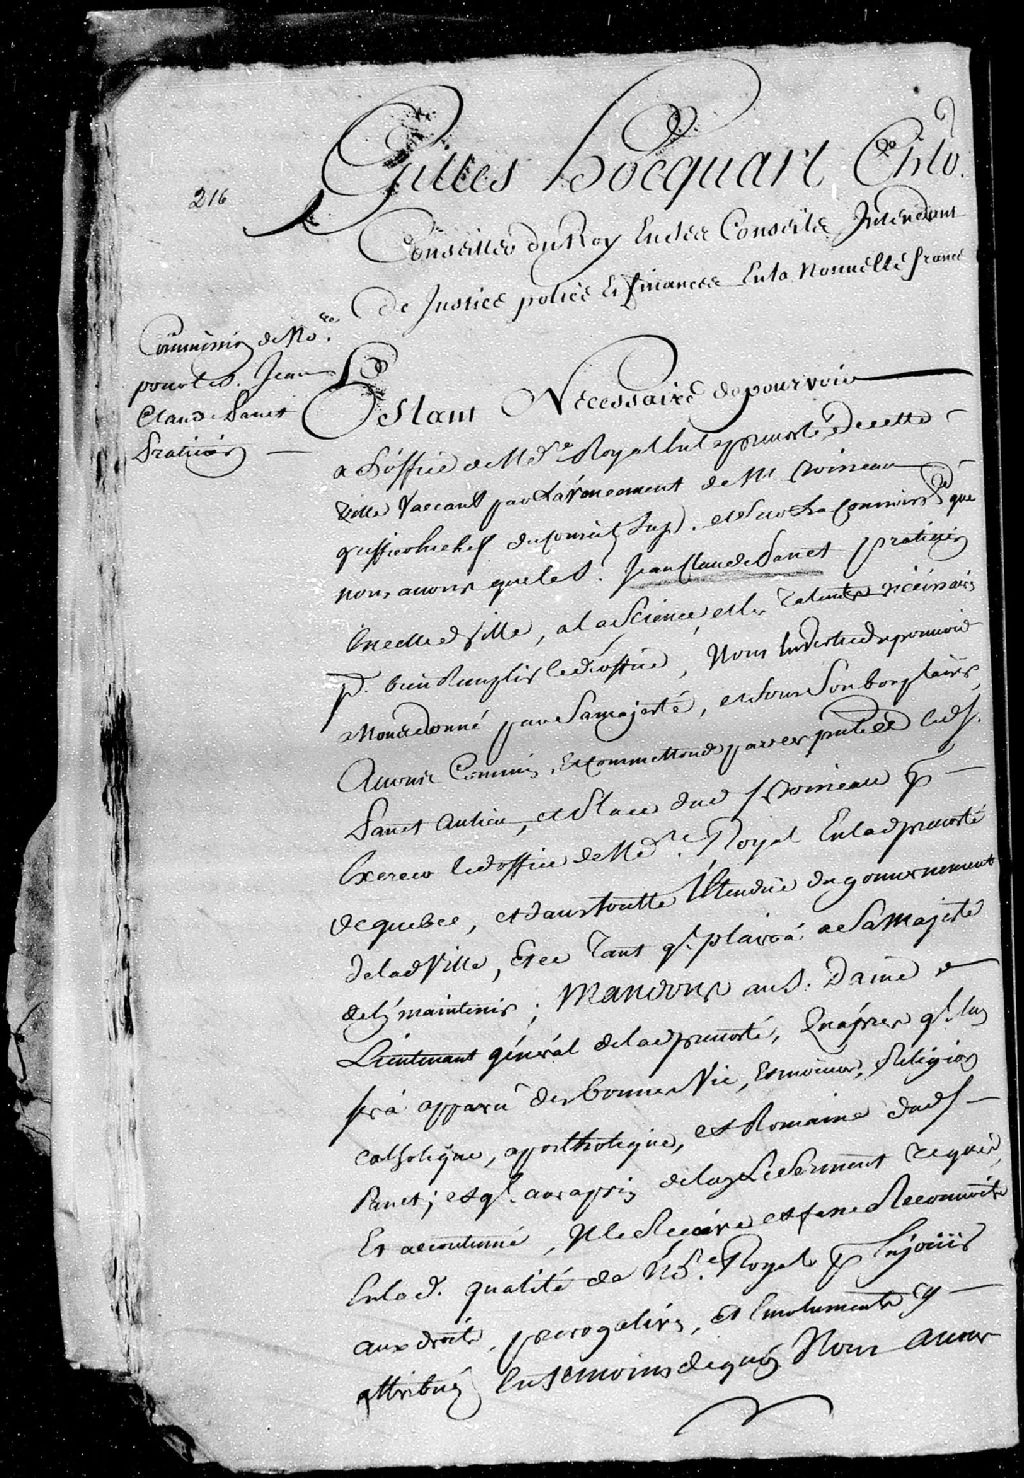 Gilles hocquart Chlr
216
Conseiller du Roy En ses Conseils Intendant
de Justice police Et finances En la Nouvelle france
Commission de No.re
pour le S. Jean
Claude Panet
Praticien
Estant Nécessaire de pourvoir
a L'office de No.re Royal En la prevosté de cette
Ville Vaccant par L'avancement de Me Boisseau
greffier En chef du Conseil Sup.r et Sur la connoiss.ce que
nous avons que le S. Jean Claude Panet praticien
En cette ville, a la Science, et les Talents nécéssaires
p.r bien Remplir led. office, Nous En vertu du pouvoir
a Nous donné par Sa majesté, et Sous Son bon plaisir,
Avons Commis, Et commettons par ces presentes led. S.
Panet au lieu, et Place dud. S. Boisseau p.r
Exercer led. office de No.re Royal En lad. prevosté
de quebec, et dans toutte l'Etendüe du gouvernement
de lad. Ville, Et ce Tant q.l plaira a Sa Majesté
de l'y maintenir; Mandons au S. Daine
Lieutenant général de lad. prevosté, Qu'apres q.l luy
sera apparû des bonnes Vie, Et moeurs, Religion
catholique, apostholique, et Romaine dud. S.
Panet; et q.l aura pris de luy Le Serment requis,
Et accoutumé, Il le Reçoive et fasse Reconnoitre
En lad. qualité de No.re Royal p.r En joüir
aux droits, prerogatives, et Emoluments y
attribués En temoins de quoy Nous avons